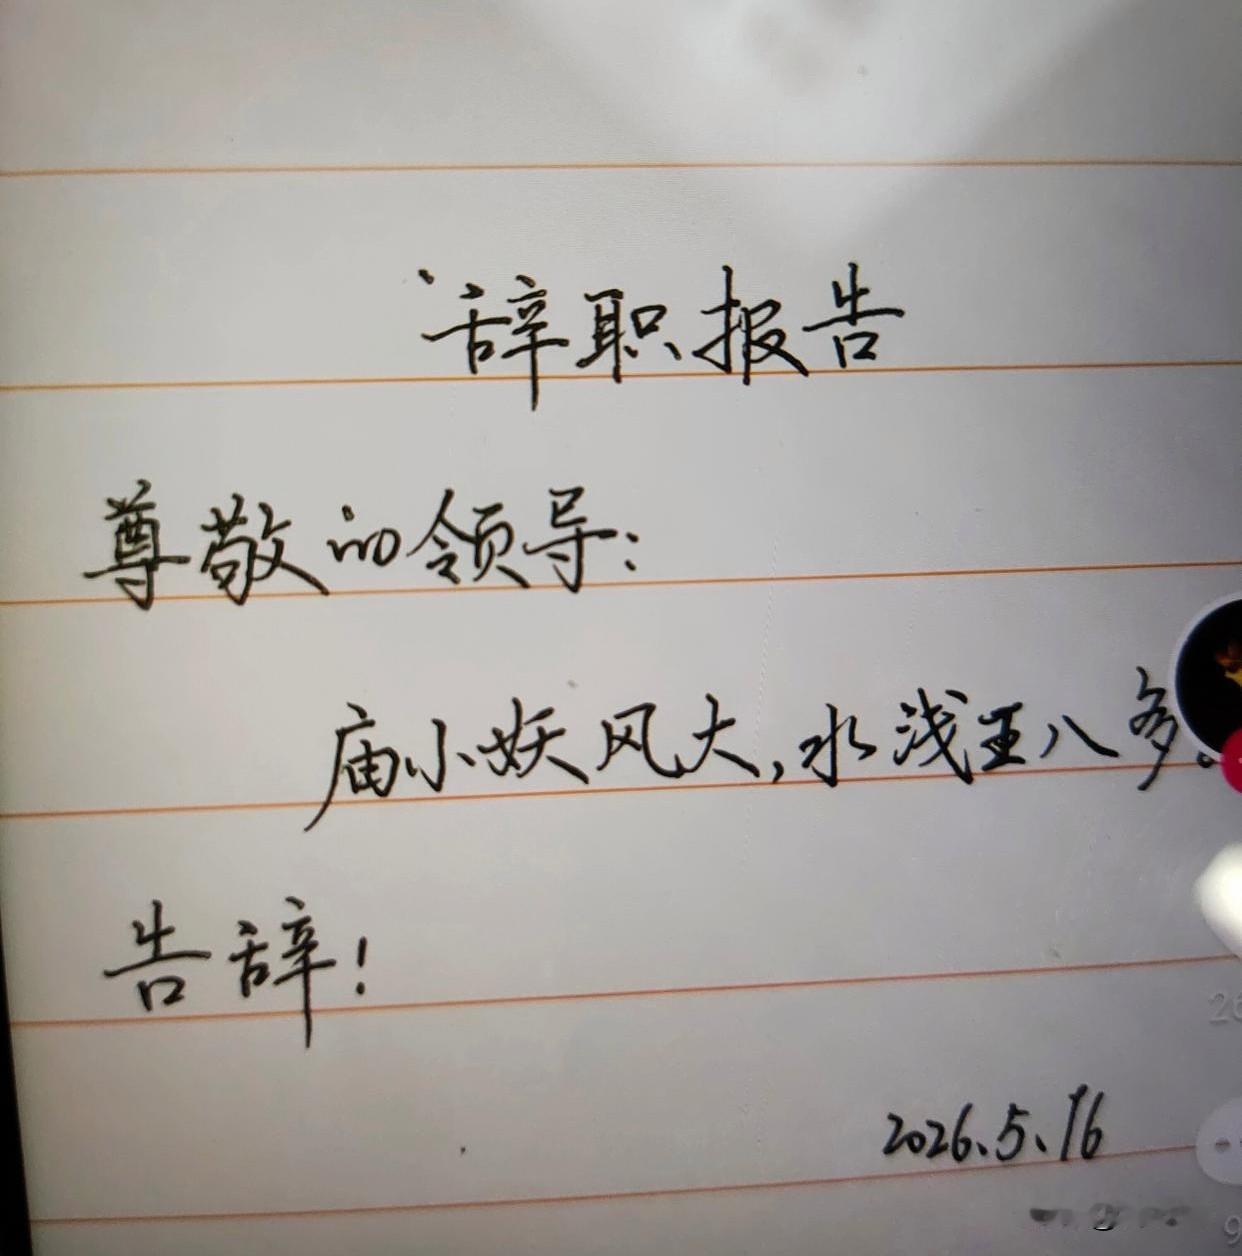 辞职报告
尊敬的领导：
庙小妖风大，水浅王八多。
告辞！
2026.5.16
26
9